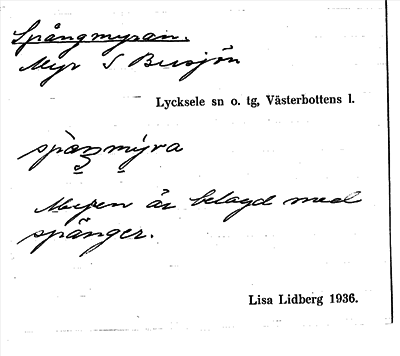 Spångmyran.
Myr S Busjön
Lycksele sn o. tg, Västerbottens l.
Myren är belagd med
spänger.
Lisa Lidberg 1936.